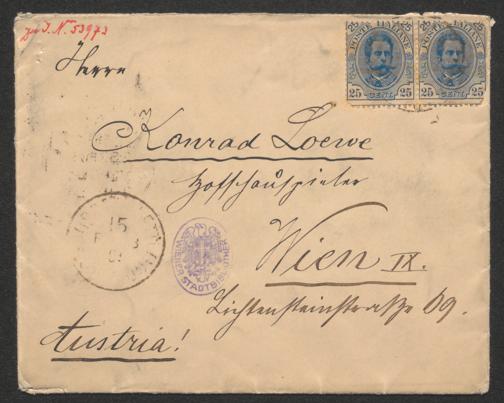 zu I. N. 53973
POSTE ITALIANE POSTE ITALIANE
25 CENT. 25 25 CENT. 25
Herrn
Konrad Loewe
Hofschauspieler
Wien IX.
Lichtensteinstraße 69.
Austria!
15
WIENER STADTBIBLIOTHEK